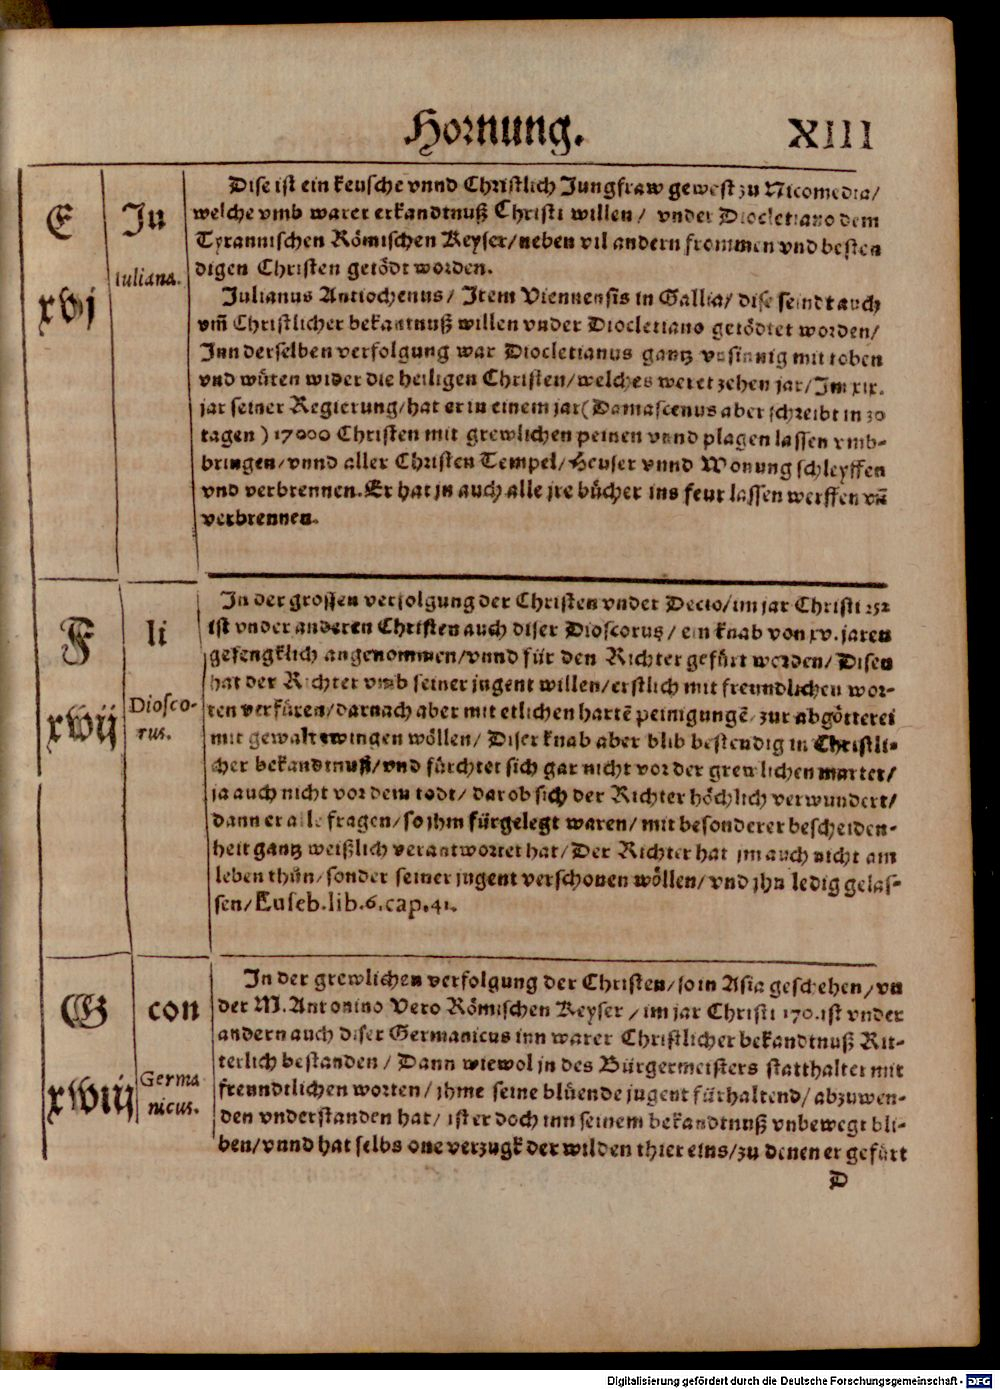 Hornung. XIII
E
xvj
Ju
iuliana.
Dise ist ein keusche vnnd Christlich Jungfraw gewest zu Nicomedia/
welche vmb warer erkandtnuß Christi willen / vnder Diocletiano dem
Tyrannischen Römischen Keyser/neben vil andern frommen vnd besten
digen Christen getödt worden.
Julianus Antiochenus/ Item Viennensis in Gallia/ dise seindt auch
vm̄ Christlicher bekantnuß willen vnder Diocletiano getödtet worden/
Inn derselben verfolgung war Diocletianus gantz vnsinnig mit toben
vnd wüten wider die heiligen Christen/welches weret zehen jar/Im xix.
jar seiner Regierung/hat er in einem jar(Damascenus aber schreibt in 30
tagen ) 17000 Christen mit grewlichen peinen vnnd plagen lassen vmb-
bringen/vnnd aller Christen Tempel/Heuser vnnd Wonung schleyffen
vnd verbrennen. Er hat jn auch alle jre bücher ins feur lassen werffen vn̄
verbrennen.
F
xvij
li
Diosco-
rus.
In der grossen verfolgung der Christen vnder Decio/im jar Christi 252
ist vnder anderen Christen auch diser Dioscorus/ ein knab von xv. jaren
gefengklich angenommen/vnnd für den Richter gefürt worden/ Disen
hat der Richter vmb seiner jugent willen/erstlich mit freundlichen wor-
ten verfüren/darnach aber mit etlichen hartē peinigungē/ zur abgötterei
mit gewalt zwingen wöllen/ Diser knab aber blib bestendig in Christli-
cher bekandtnuß/vnd fürchtet sich gar nicht vor der grewlichen marter/
ja auch nicht vor dem todt/ darob sich der Richter höchlich verwundert/
dann er alle fragen/so jhm fürgelegt waren/ mit besonderer bescheiden-
heit gantz weißlich verantwortet hat/ Der Richter hat jm auch nicht am
leben thün/sonder seiner jugent verschonen wöllen/vnd jhn ledig gelas-
sen/Euseb.lib.6.cap.41.
G
xviij
con
Germa
nicus.
In der grewlichen verfolgung der Christen/so in Asia geschehen/vn
der M. Antonino Vero Römischen Keyser / im jar Christi 170.ist vnder
andern auch diser Germanicus inn warer Christlicher bekandtnuß Rit-
terlich bestanden / Dann wiewol jn des Bürgermeisters statthalter mit
freundtlichen worten/ jhme seine blüende jugent fürhaltend/ abzuwen-
den vnderstanden hat/ ist er doch inn seinem bekandtnuß vnbewegt bli-
ben/vnnd hat selbs one verzugk der wilden thier eins/zu denen er gefürt
D
Digitalisierung gefördert durch die Deutsche Forschungsgemeinschaft - DFG